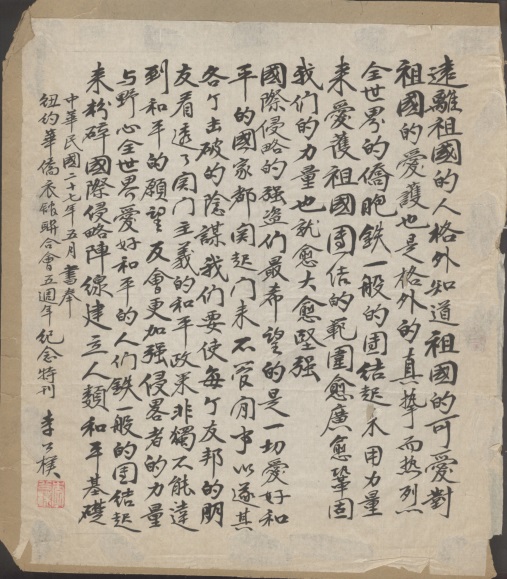 遠離祖國的人格外知道祖國的可愛對
祖國的愛護也是格外的真摯而热烈
全世界的僑胞鉄一般的团结起来用力量
来愛護祖國团结的範圍愈廣愈巩固
我们的力量也就愈大愈堅强
國際侵略的强盗们最希望的是一切愛好和
平的國家都関起门来不管闲事以遂其
各个击破的陰謀我们要使每个友邦的朋
友看透了関门主義的和平政策非獨不能達
到和平的願望反會更加强侵畧者的力量
与野心全世界愛好和平的人们鉄一般的团结起
来粉碎國際侵略陣線建立人類和平基礎
中華民國二十七年五月書奉
紐约華僑衣舘聯合會五週年紀念特刊 李公樸